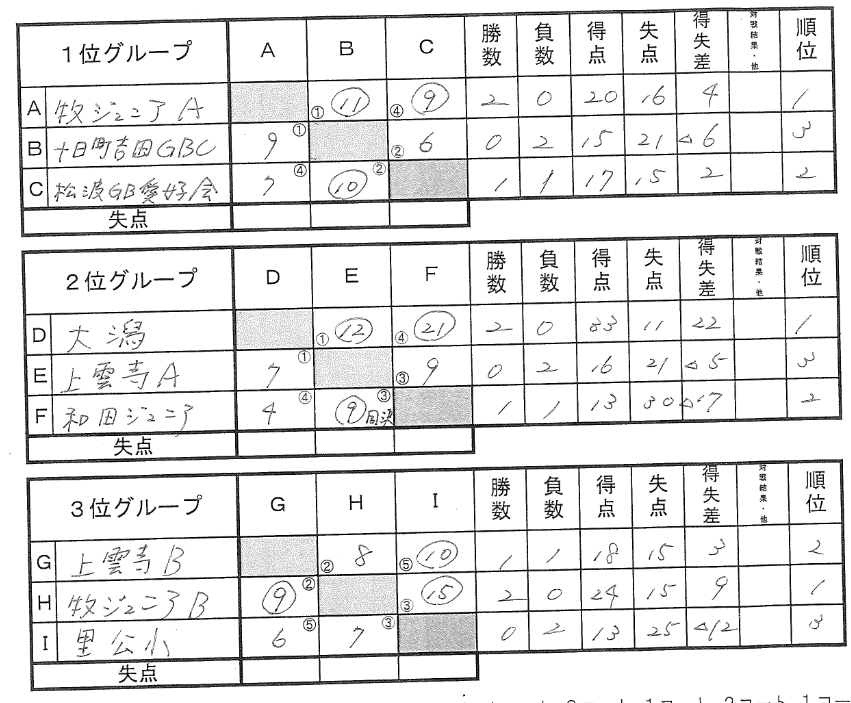 1位グループ A B C 勝数 負数 得点 失点 得失差 対戦結果・他 順位
A 牧ジュニアA ① 11 ④ 9 2 0 20 16 4 1
B 十日町吉田GBC 9 ① ② 6 0 2 15 21 △6 3
C 松波GB愛好会 7 ④ 10 ② 1 1 17 15 2 2
失点
2位グループ D E F 勝数 負数 得点 失点 得失差 対戦結果・他 順位
D 大潟 ① 12 ④ 21 2 0 33 11 22 1
E 上雲寺A 7 ① ③ 9 0 2 16 21 △5 3
F 和田ジュニア 4 ④ 9 ③ 1 1 13 30 △17 2
失点
3位グループ G H I 勝数 負数 得点 失点 得失差 対戦結果・他 順位
G 上雲寺B ② 8 ⑤ 10 1 1 18 15 3 2
H 牧ジュニアB 9 ② ③ 15 2 0 24 15 9 1
I 里公小 6 ⑤ 7 ③ 0 2 13 25 △12 3
失点